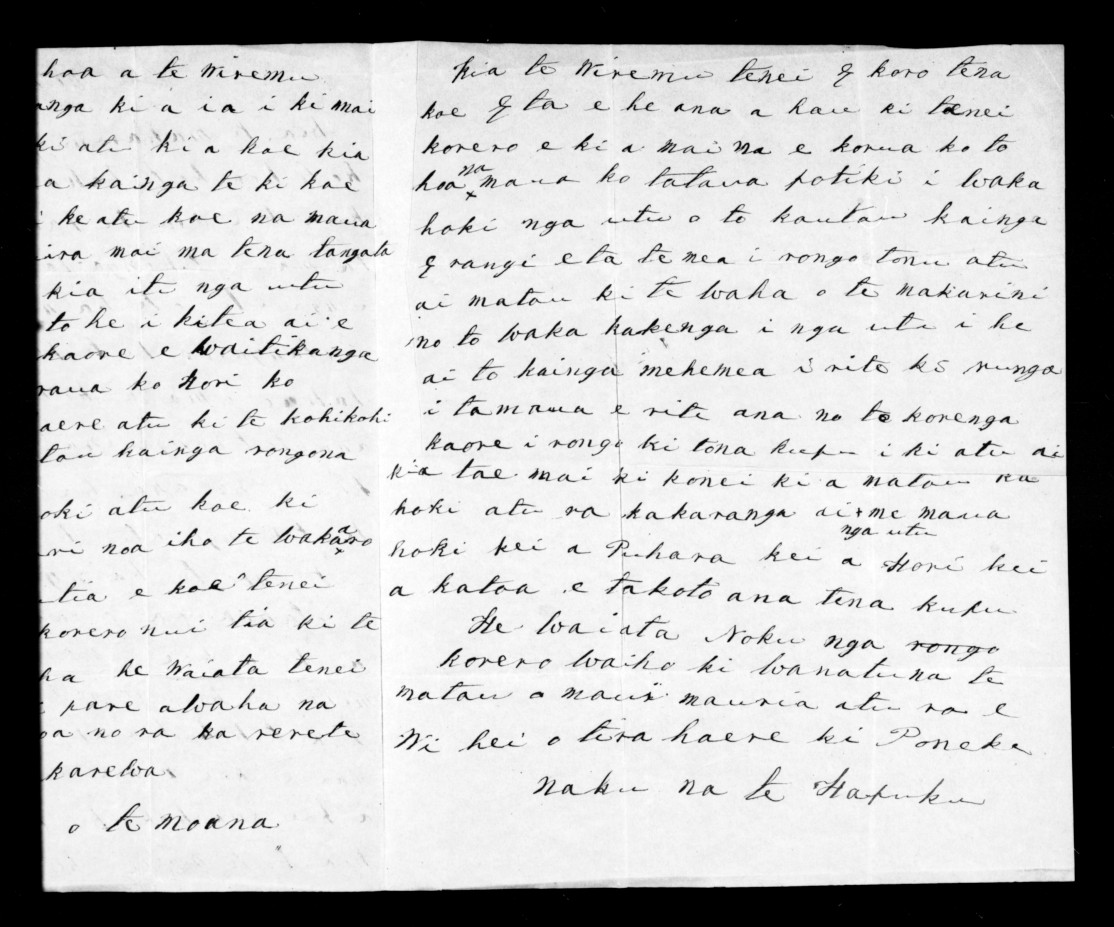 hoa a te Wiremu
anga ki a ia i ki mai
ki atu ki a koe kia
a kainga te ki koe
i ke atu koe na maua
ira mai ma tena tangata
kia itu nga utu
to he i kitea ai e
kaore e waitikanga
raua ko Hori ko
aere atu ki te kohikohi
tou kainga rongona
oki atu koe ki
ri noa iho te wakaaro
tia e koe tenei
korero nui tia ki te
ha he Waiata tenei
i pare awaha na
oa no ra ka rerete
karewa
o te moana
kia te Wiremu tenei E koro tena
koe E ta e he ana a hau ki tenei
korero e ki a mai na e korua ko to
hoa na maua ko tataua potiki i waka
hoki nga utu o to koutou kainga
E rangi e ta te mea i rongo tonu atu
ai matou ki te waha o te makarini
no to waka kakenga i nga utu i he
ai to kainga mehemea i rite ki runga
i ta maua e rite ana no te korenga
kaore i rongo ki tona kupu i ki atu ai
kia tae mai ki konei ki a matou ka
hoki atu ra ka karanga ai me maua
hoki nga utu kei a Puhara kei a Hori kei
a katoa e takoto ana tena kupu
He Waiata Noku nga rongo
korero waiho ki wanatuna te
matau a maui mauria atu ra e
Wi hei o tira haere ki Poneke
naku na te Hapuku